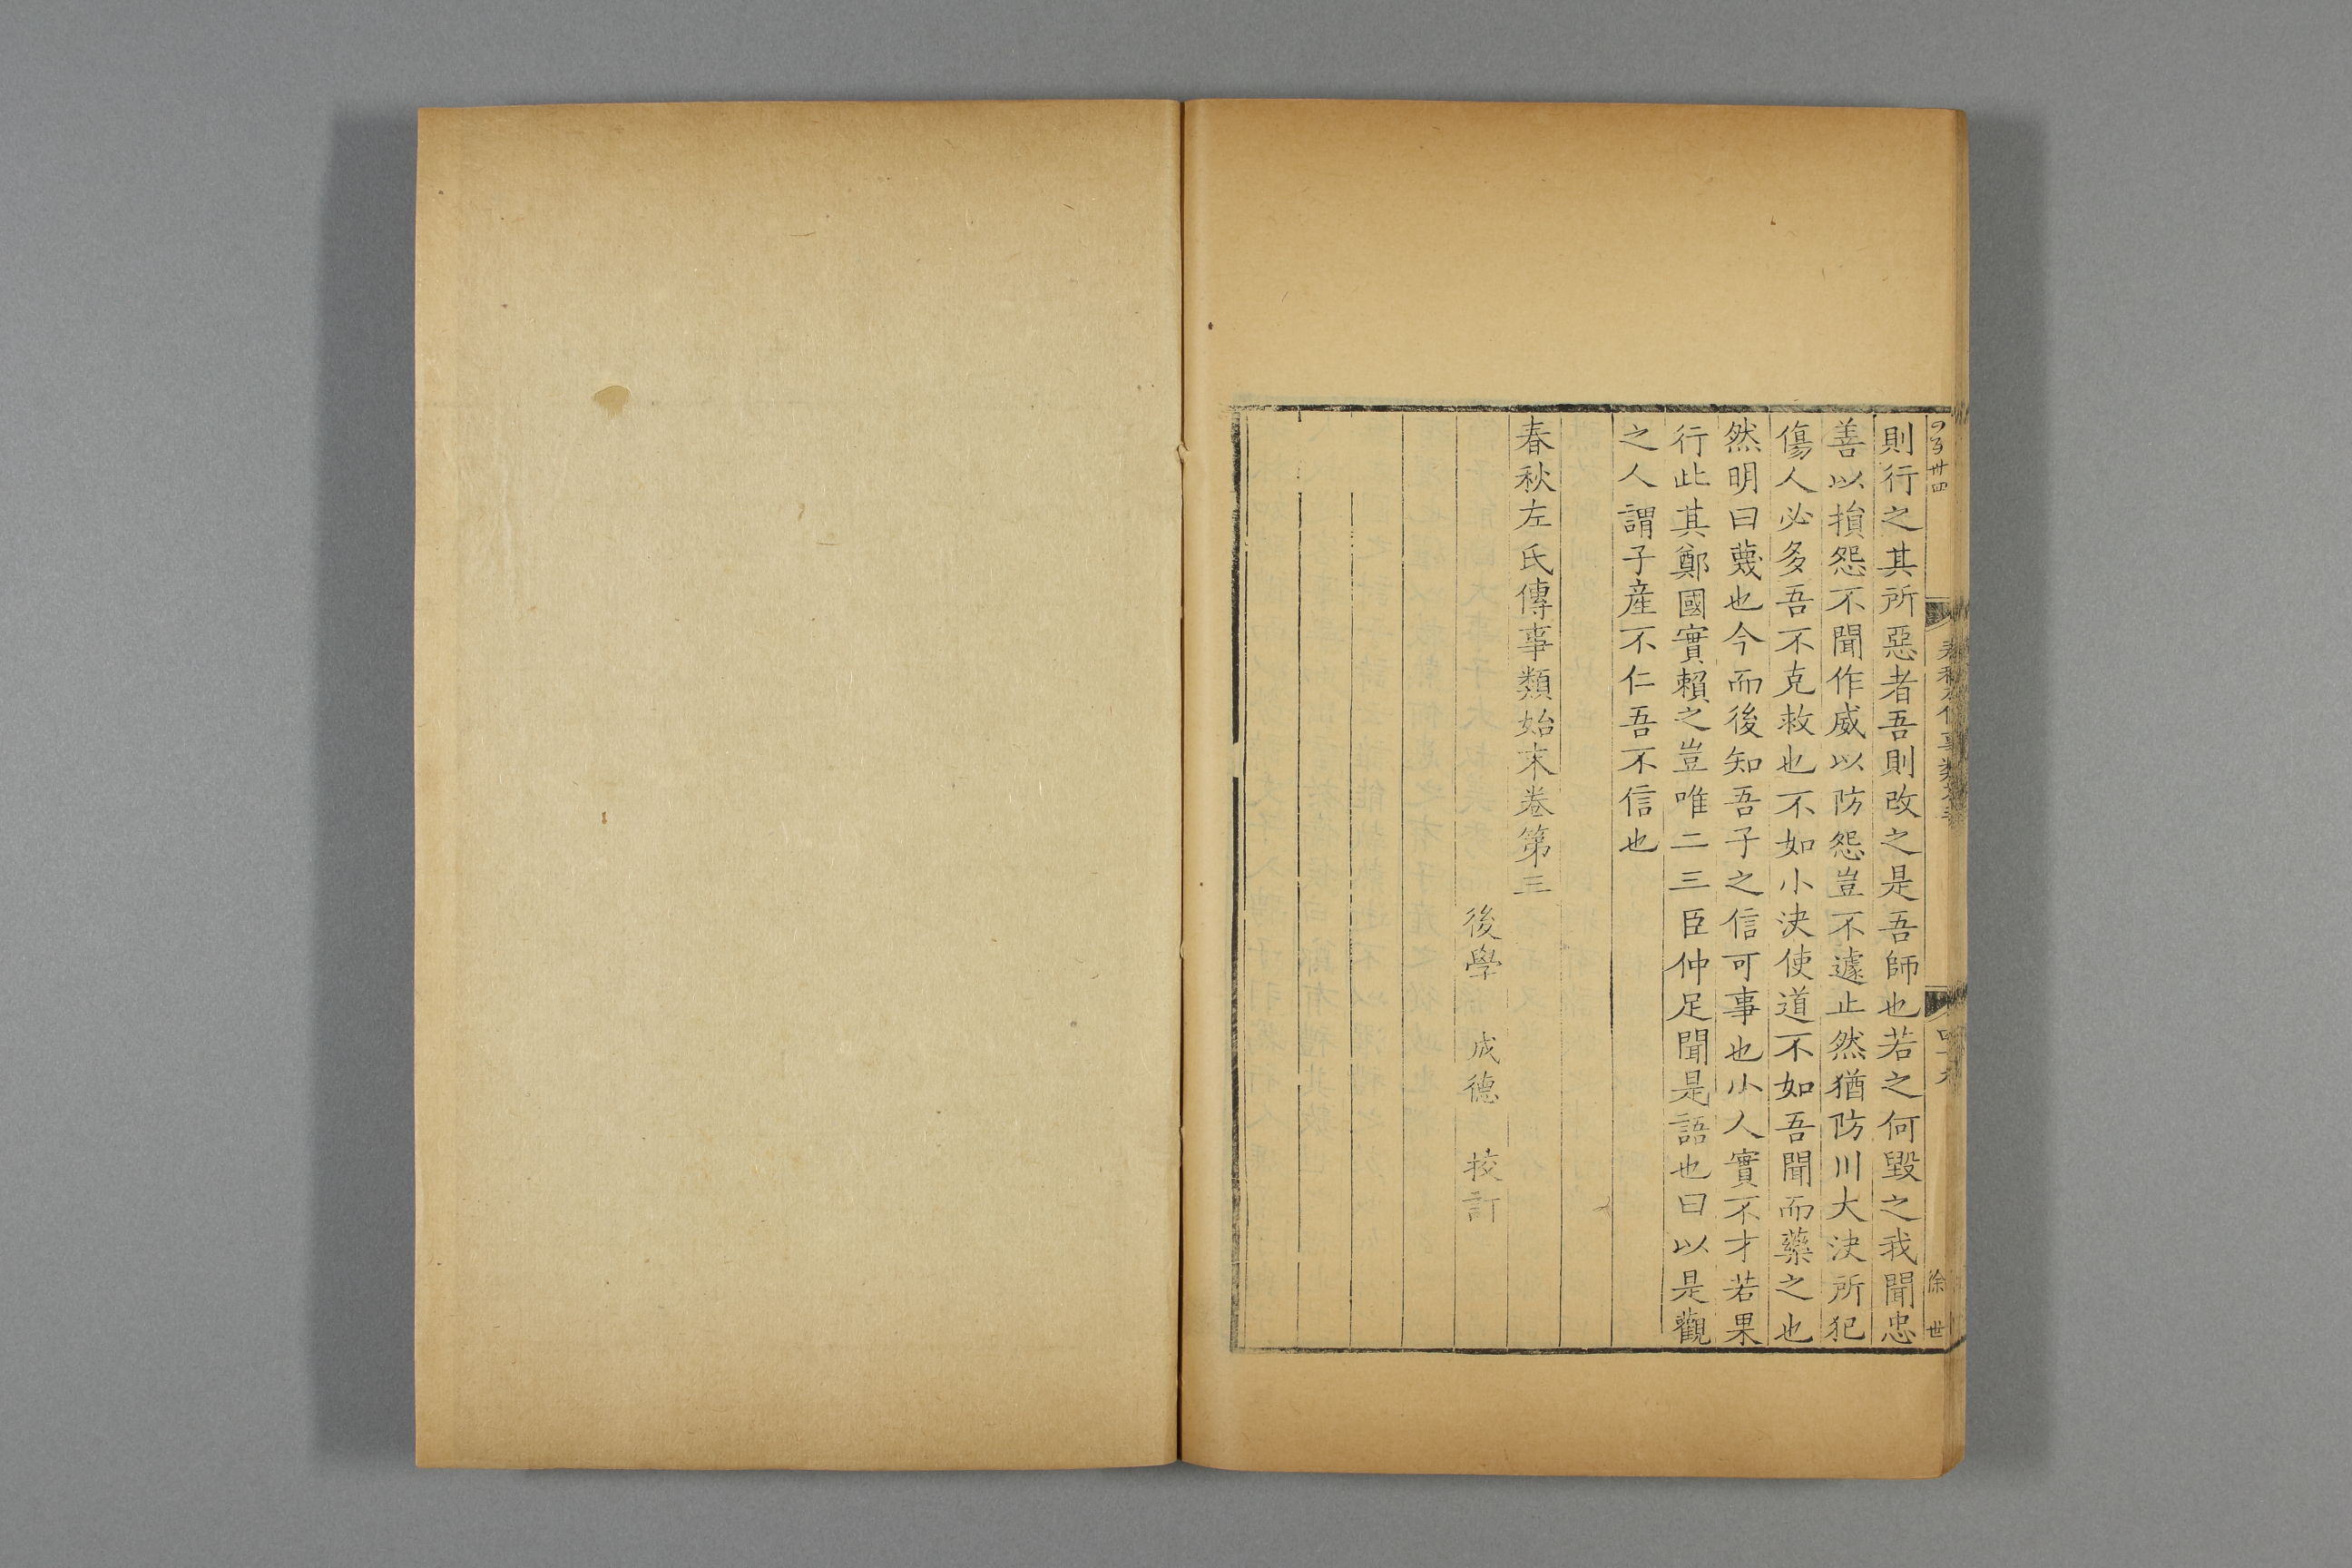 則行之其所惡者吾則改之是吾師也若之何毀之我聞忠
善以損怨不聞作威以防怨豈不遽止然猶防川大決所犯
傷人必多吾不克救也不如小決使道不如吾聞而藥之也
然明曰蔑也今而後知吾子之信可事也小人實不才若果
行此其鄭國實賴之豈唯二三臣仲足聞是語也曰以是觀
之人謂子產不仁吾不信也
春秋左氏傳事類始末卷第三
後學 成德 挍訂